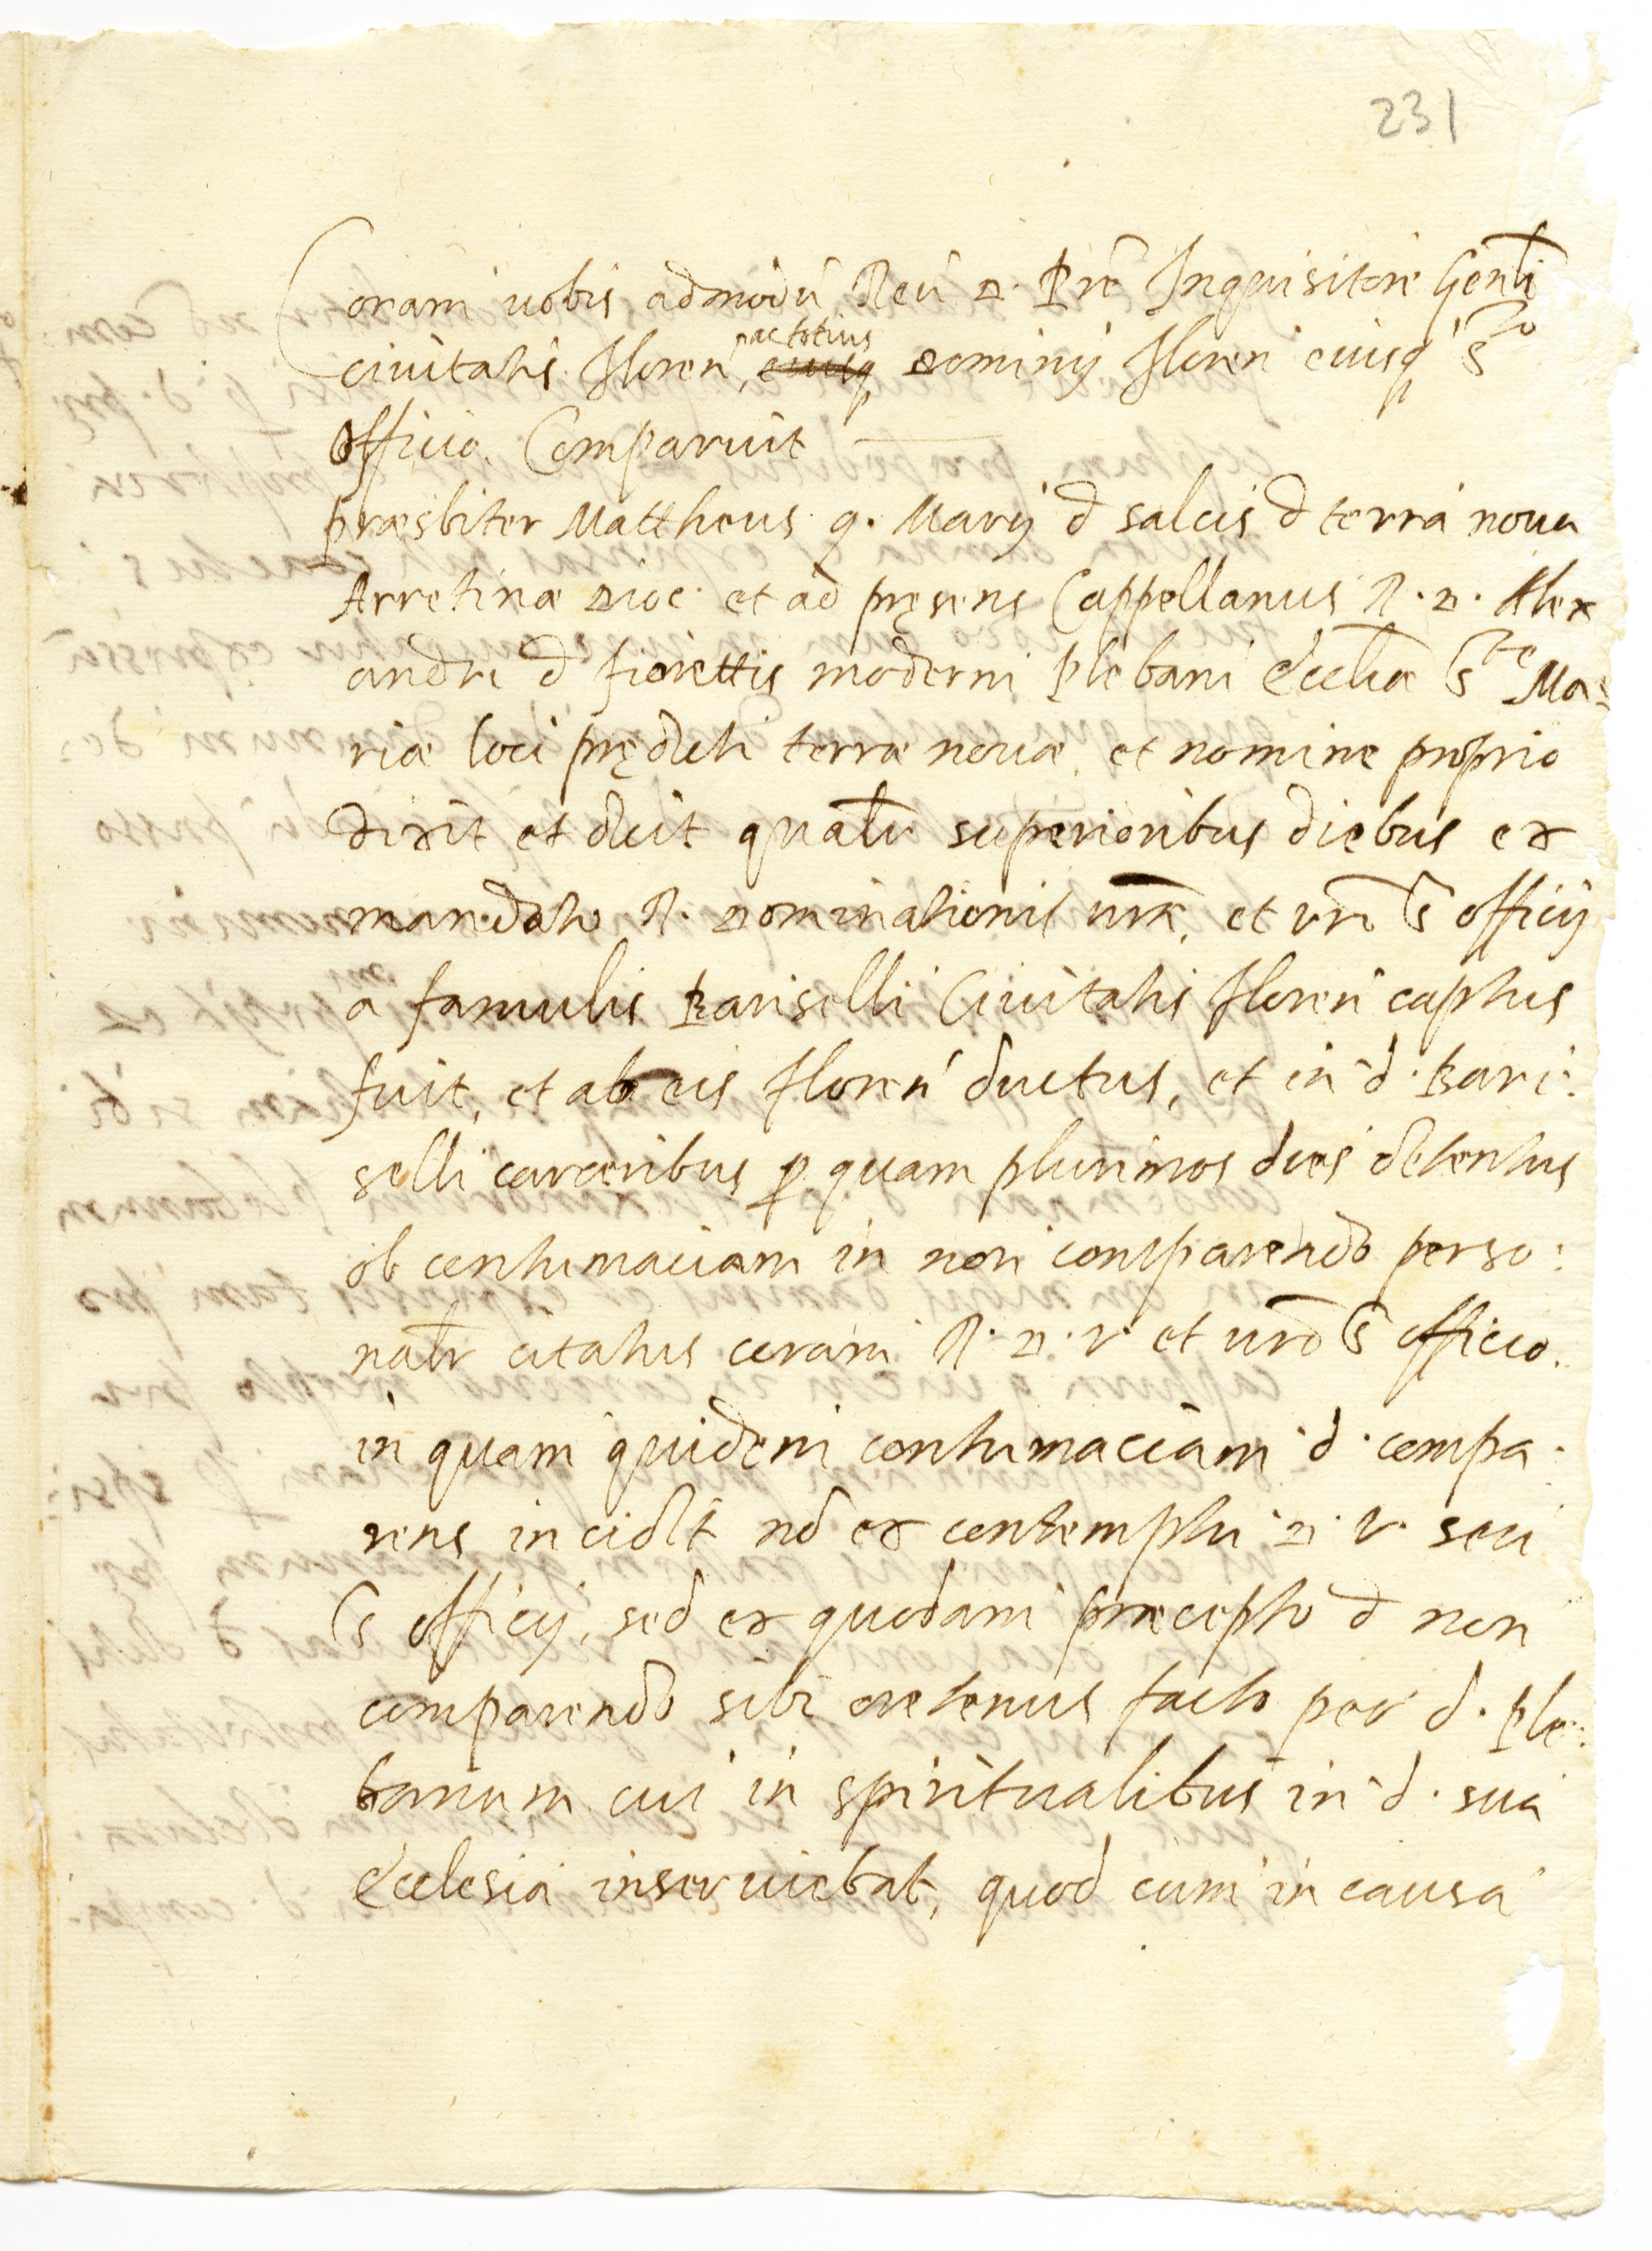 231
Coram uobis admodũ Reũ D. Prẽ Inquisitore Gen̄li
ciuitatis Floreñ, ac totius euisq̃ Dominij Floreñ eiusq̃ Sto
Officio. Comparuit
præsbiter Mattheus q. Marij d̄ salcis d̄ terra noua
Arretinæ Dioc. et ad pręsens Cappellanus R. D. Alex
andri d̄ fiorettis moderni Plebani Eccliæ Ste Ma:
riæ loci prędicti terræ nouæ, et nomine proprio
dixit et dicit qualr̃ superioribus diebus ex
mandato R. Dominationis ur̃æ, et vr̃i S officij
a famulis Bariselli Ciuitatis Floreñ captus
fuit, et ab eis Floreñ ductus, et in d. Bari:
selli carceribus p̱ quam plurimos dies detentus
ob contumaciam in non comparendo perso:
nalr̃ citatus coram R. D. V. et ur̃o S officio.
in quam quidem contumaciam d. compa:
rens incidit nõ ex contemptu D. V. seu
S officij, sed ex quodam præcepto d̄ non
comparendo sibi oretenus facto per d. Ple:
banum cui in spiritualibus in d. sua
Ecclesia inseruiebat, quod cum in causa